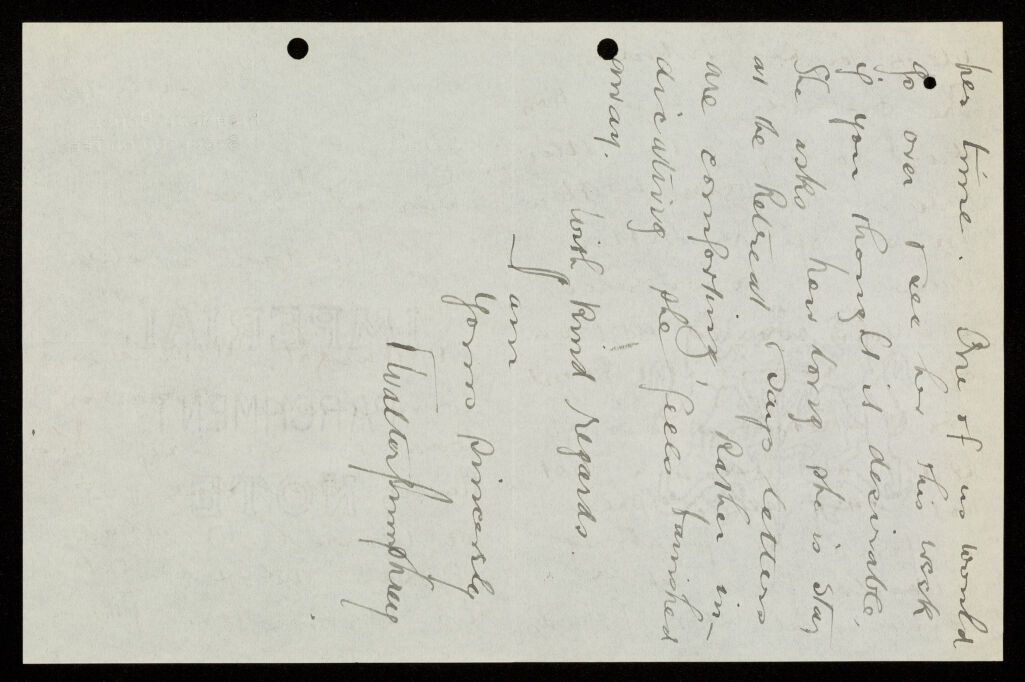 her time. One of us would
go over & see her this week
if you thought it desirable.
She asks how long she is stay
at the Retreat & says letters
are comforting, Rather in-
dicating she feels banished
away.
With kind regards.
I
am
Yours sincerely
Walter Humphrey
IMPERIAL
PARCHMENT
NOTE